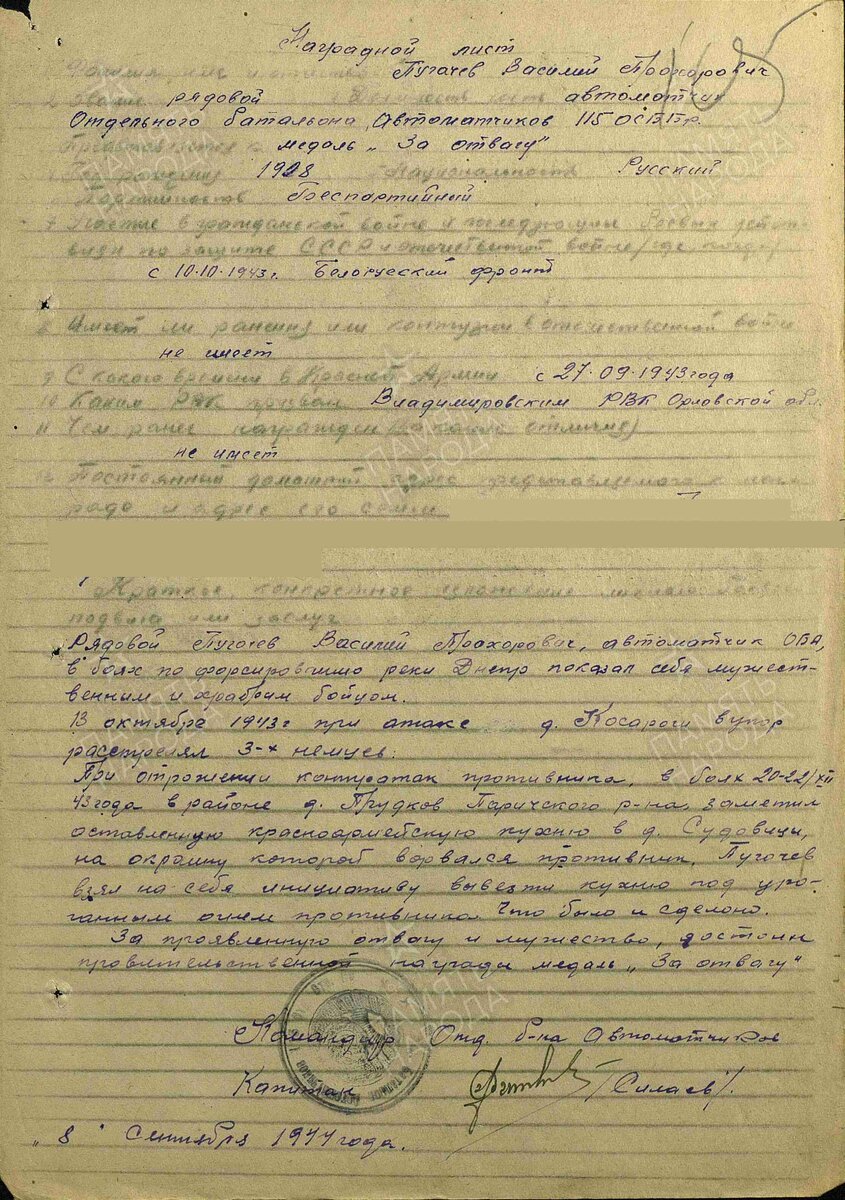 Наградной лист
Фамилия имя и отчество Пугачев Василий Прохорович
2 Звание рядовой Должность часть автоматчик
Отдельного батальона Автоматчиков 115 ОСБПр.
Представляется к медаль „За отвагу"
Год рождения 1928 Национальность Русский
Партийность Беспартийный
7 Участие в гражданской войне и последующим боевым действиям
по защите СССР и отечественной войне (где когда)
с 10.10.1943г. Белорусский фронт
8 Имеет ли ранения или контузии в отечественной войне
не имеет
9 С какого времени в Красной Армии с 27.09.1943года
10 Каким РВК призван Владимировским РВК Орловской обл
11 Чем ранее награжден (за какие отличия)
не имеет
12 Постоянный домашний адрес представляемого к наг
раде и адрес его семьи
Краткое, конкретное изложение личного боевого
подвига или заслуг
Рядовой Пугачев Василий Прохорович, автоматчик ОБА,
в боях по форсированию реки Днепр показал себя мужест-
венным и храбрым бойцом.
13 октября 1943г при атаке д. Косароги в упор
расстрелял 3-х немцев.
При отражении контратак противника, в боях 20-22/XII
43года в районе д. Прудков Паричского р-на, заметил
оставленную красноармейскую кухню в д. Судовицы,
на окраину которой ворвался противник, Пугачев
взял на себя инициативу вывезти кухню под ура-
ганным огнем противника. Что было и сделоно.
За проявленную отвагу и мужество, достоин
правительственной награды медаль „За отвагу"
Командир Отд. б-на Автоматчиков
Капитан /Силаев/.
„8" Сентября 1944года.
ПАМЯТЬ
НАРОДА